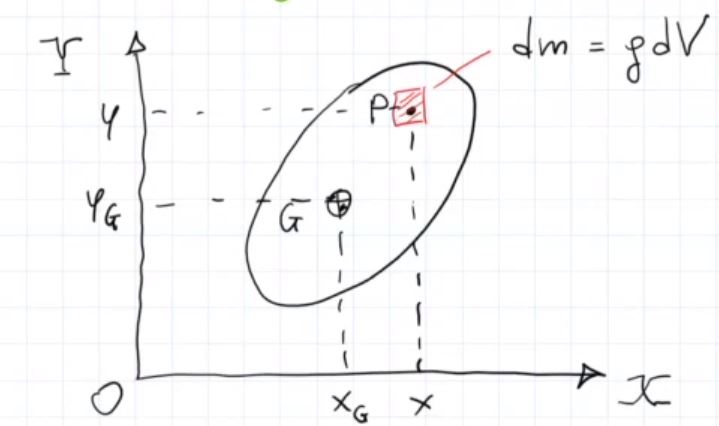 Y
dm = ρdV
y
P
y_G
G
O
x_G
x
X